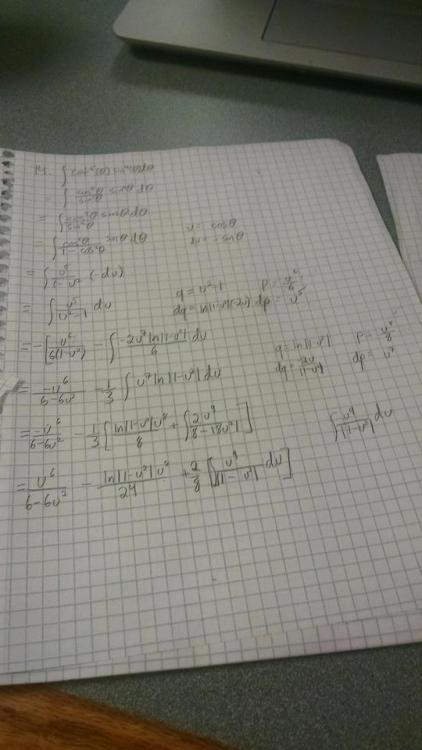 14. ∫ cot⁵(θ) sin⁴(θ) dθ
= ∫ cos⁵θ/sin⁵θ sin⁴θ dθ
= ∫ cos⁵θ/sin²θ sinθ dθ
= ∫ cos⁵θ/1-cos²θ sinθ dθ u = cosθ
du = -sinθ
= ∫ u⁵/1-u² (-du)
= ∫ u⁵/u²-1 du q = u²-1 p = u⁶/6
dq = ln|1-u²|(-2u) dp = u⁵
= -[u⁶/6(1-u²) - ∫ -2u⁷ln|1-u²|/6 du
= -u⁶/6-6u² - 1/3 ∫ u⁷ ln|1-u²| du q = ln|1-u²| p = u⁸/8
dq = -2u/|1-u²| dp = u⁷
= -u⁶/6-6u² - 1/3 [ln|1-u²|u⁸/8 + ∫ 2u⁹/8-|8u²|] ∫ u⁹/|1-u²| du
= u⁶/6-6u² - ln|1-u²|u⁸/24 + 2/8 [∫ u⁹/|1-u²| du]